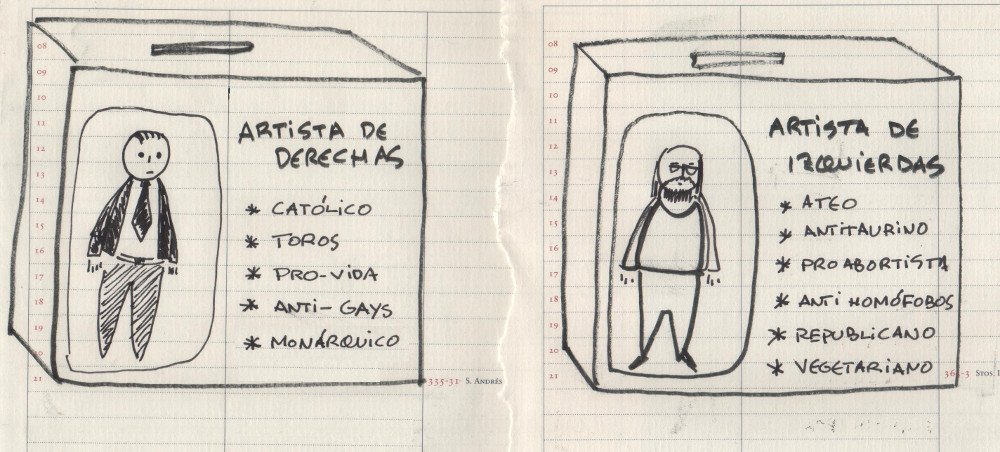 08
09
10
11
12
13
14
15
16
17
18
19
20
21
ARTISTA DE
DERECHAS
* CATÓLICO
* TOROS
* PRO-VIDA
* ANTI-GAYS
* MONÁRQUICO
335-31 S. ANDRÉS
08
09
10
11
12
13
14
15
16
17
18
19
20
21
ARTISTA DE
IZQUIERDAS
* ATEO
* ANTITAURINO
* PROABORTISTA
* ANTI HOMÓFOBOS
* REPUBLICANO
* VEGETARIANO
STOS.